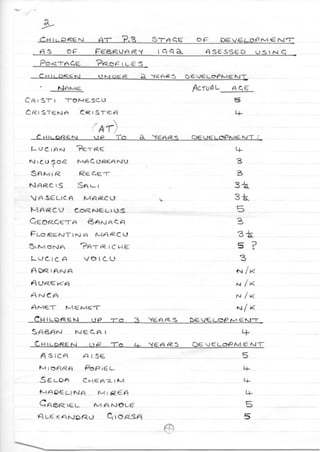 2
CHILDREN AT P.3 STAGE OF DEVELOPMENT
AS OF FEBRUARY 1992 ASSESSED USING
PORTAGE PROFILES
CHILDREN UNDER 2 YEARS DEVELOPMENT
NAME ACTUAL AGE
CRISTI TOMESCU 5
CRISTENA CRISTEA 4
(AT)
CHILDREN UP TO 2 YEARS DEVELOPMENT:
LUCIAN PETRE 4
NICUSOR MACUREANU 3
SAMIR REGET 3
NARCIS SALI 3½
VASELICA MARCU 3½
MARCU CORNELIUS 5
GEORGETA BANACA 3
FLORENTINA MARCU 3½
SIMONA PATRICHE 5 ?
LUCICA VOICU 3
ADRIANA N/K
AUREKA N/K
ANCA N/K
AMET MEMET N/K
CHILDREN UP TO 3 YEARS DEVELOPMENT
SABAN NEGAI 4
CHILDREN UP TO 4 YEARS DEVELOPMENT
ASICA AISE 5
MIOARA POPIEL 4
SELDA CHEAZIM 4
MADELINA MIREA 4
GABRIEL MANOLE 5
ALEXANDRU GIORSA 5